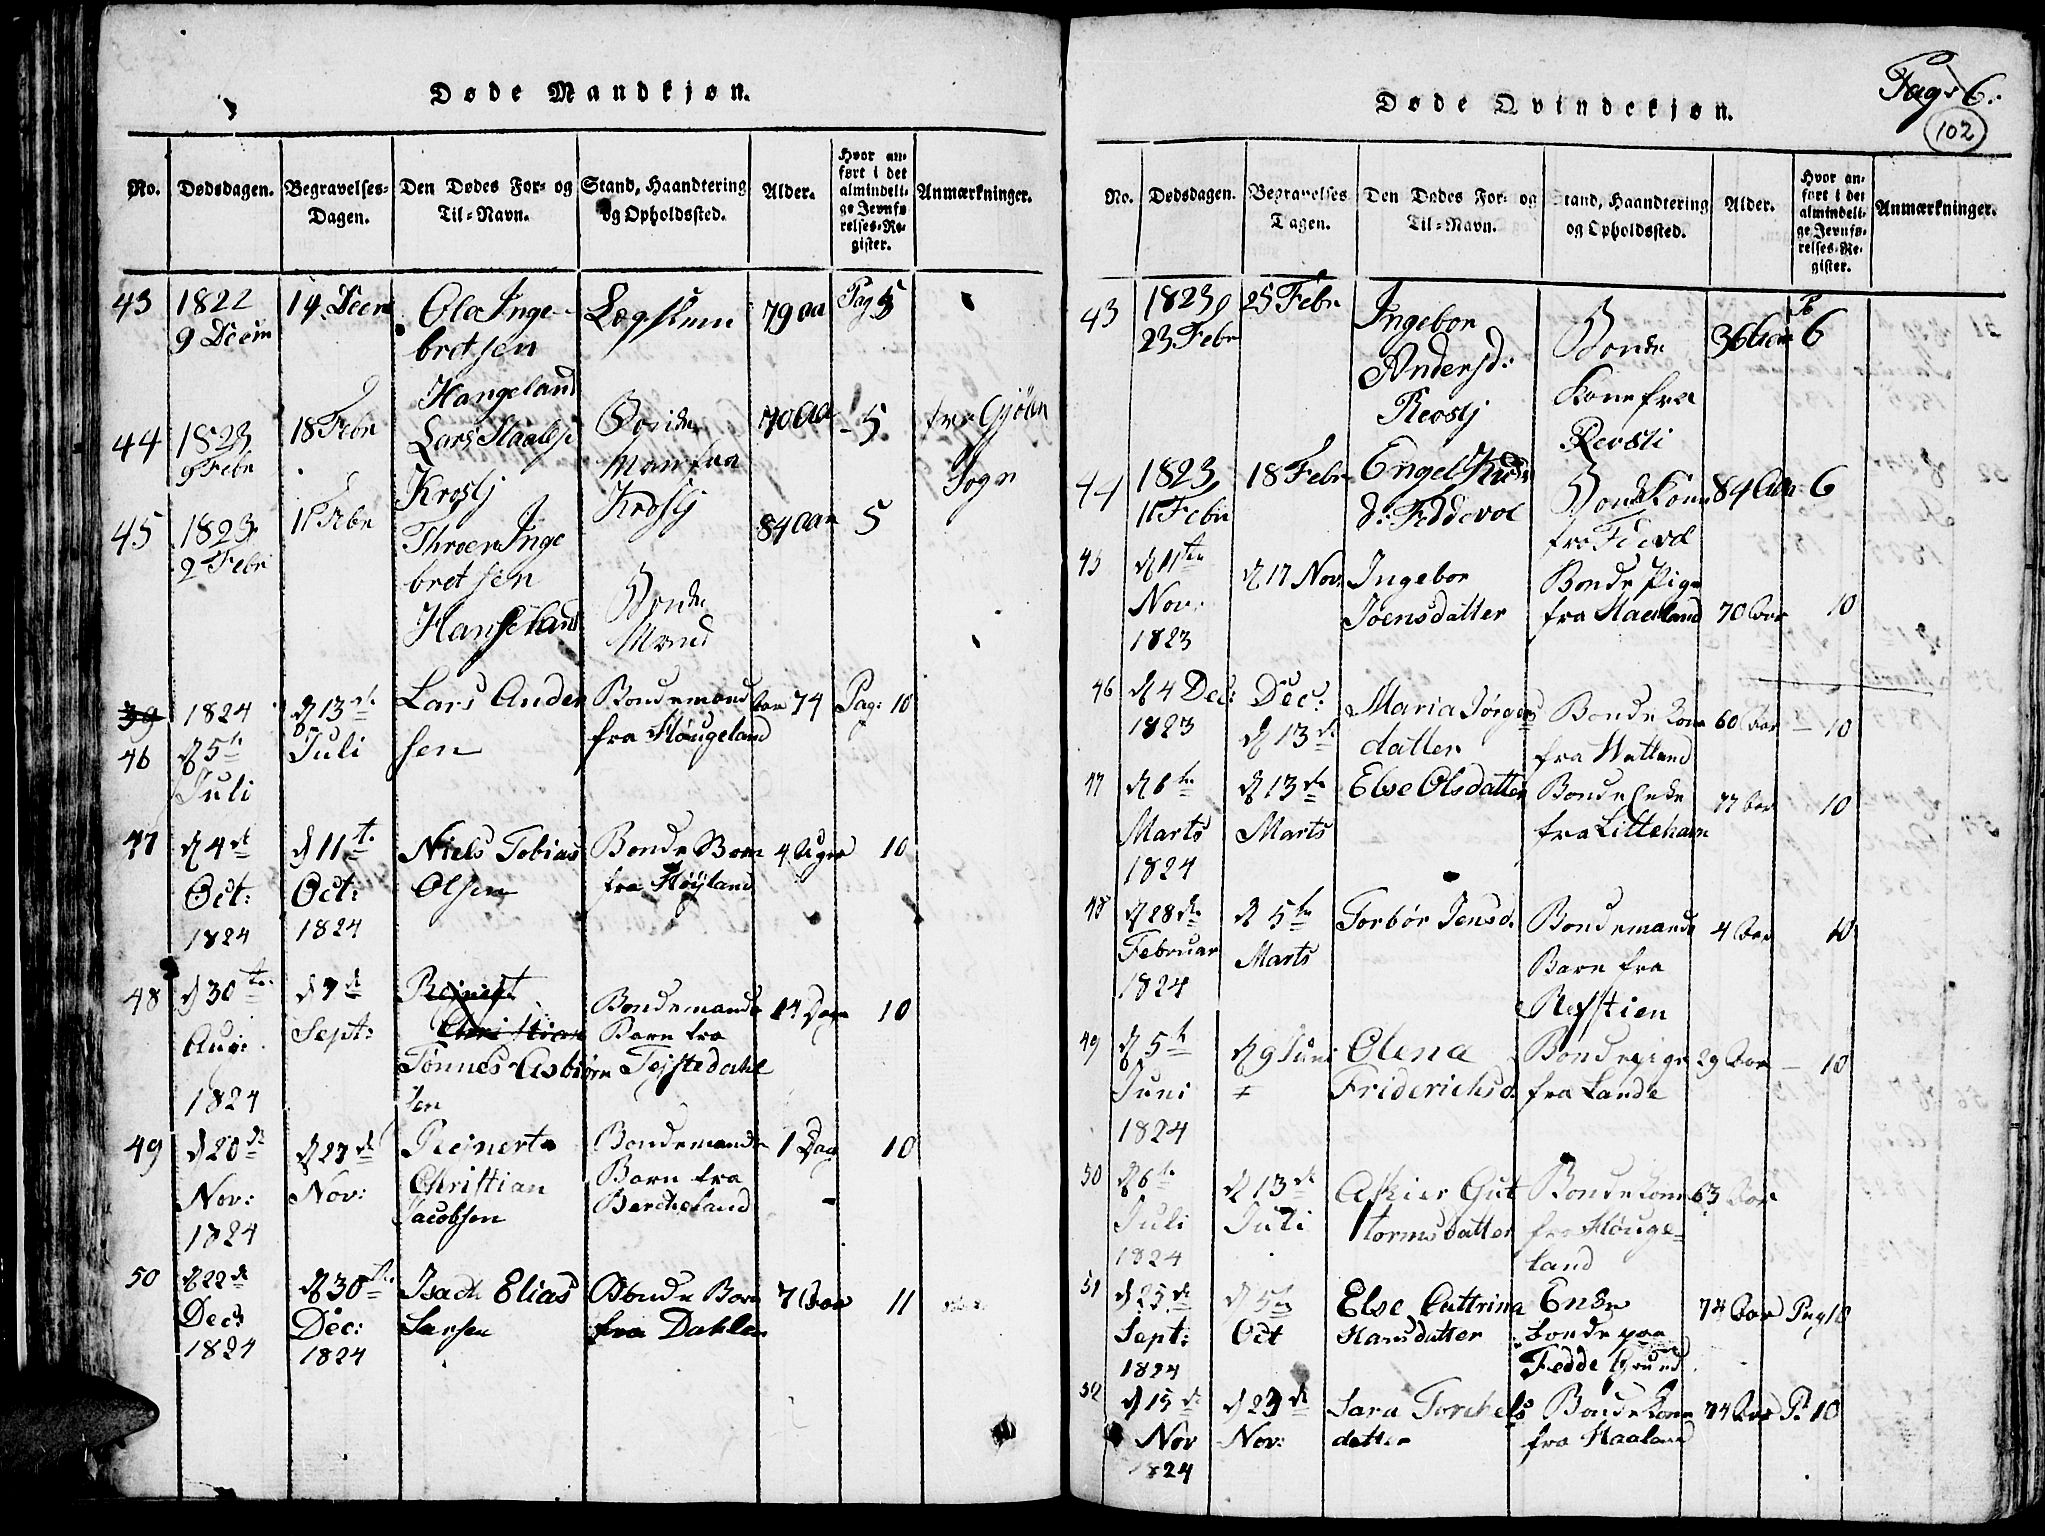 Døde Mandkjøn.
No. Dødsdagen. Begravelses-Dagen. Den Dødes For- og Til-Navn. Stand, Haandtering og Opholdssted. Alder. Hvor anført i det almindelige Jevnførelses-Register. Anmærkninger.
43 1822 14 Decm Ola Inge- Lægslem 79 aa Pag 5
9 Decem bretsen
Hangeland
44 1823 18 Febr Lars Staalss 70 Aa - 5 fra Gjøln
9 Febr Krosly Man fra Sogn
Krosly
45 1823 11 Febr Throen Inge 84 Aar 5
2 Febr bretsen Bonde
Hangeland Mand
39 1824 d 13de Lars Ander Bondemand Aar 74 Pag: 10
46 d 5te Juli sen fra Høugeland
Juli
47 d 4de d 11te Niels Tobias Bonde Barn 4 Uger 10
Oct: Oct: Olsen fra Høyland
1824 1824
48 d 30te d 7de Reinert Bondemands 14 Dage 10
Aug: Sept: Christian Barn fra
1824 Tønnes Asbiørn Tejstedahl
sen
49 d 20de d 27de Reinert Bondemands 1 Dag 10
Nov: Nov: Christian Barn fra
1824 Jacobsen Bercheland
50 d 22de d 30te Isach Elias Bonde Barn 7 Aar 11
Dec: Dec: Larsen fra Dahle
1824 1824
Døde Qvindekjøn.
Pag: 6.
102
No. Dødsdagen. Begravelses Dagen. Den Dødes For- og Til-Navn. Stand, Haandtering og Opholdssted. Alder. Hvor anført i det almindelige Jevnførelses-Register. Anmærkninger.
43 1823 25 Febr Ingebor Bonde 36 Aar P 6
23 Febr Andersd: Kone fra
Revsly Revsli
44 1823 18 Febr Engel Bonde Kone 84 Aar 6
11 Febr d: Feddevol fra
45 d 11te d 17 Nov: Ingebor Bonde Pige
Nov: Joensdatter fra Haaland 70 Aar 10
1823
46 d 4 Dec: Dec: Maria Jørgens Bonde Kone 60 Aar - 10
1823 d 13de datter fra Watland
47 d 6te d 13de Else Olsdatter Bonde Enke 77 Aar 10
Marts Marts fra Litleham
1824
48 d 28de d 5te Torbør Jensd. Bondemands 4 Aar 10
Februar Marts Barn fra
1824 Refstien
49 d 5te d 9 Juni Olena Bondepige 29 Aar - 10
Juni Friderichsd. fra Lande
1824
50 d 6te d 13de Askier Gut Bonde Kone 63 Aar
Juli Juli tormsdatter fra Høuge-
1824 land
51 d 25de d 5te Else Cattrina Enke 74 Aar Pag 10
Sept: Oct Hansdatter boende paa
1824 Fedde Grund
52 d 15de d 23de Sara Torchels Bonde Kone 74 Aar P: 10
Nov Nov: datter fra Haaland
1824